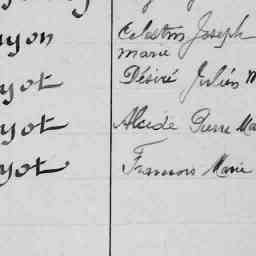 yon Celestin Joseph
marie
yot Désiré Julien M
yot Alcide Pierre Ma
yot Francois Marie